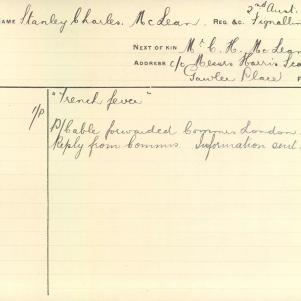 2nd Aust.
NAME Stanley Charles McLean. REG &C. Signallin
NEXT OF KIN Mr C. H. McLean
ADDRESS c/o Messrs Harris Sca
Gawler Place
"Trench fever"
R/P Cable forwarded Commrs London.
Reply from Commrs. Information sent